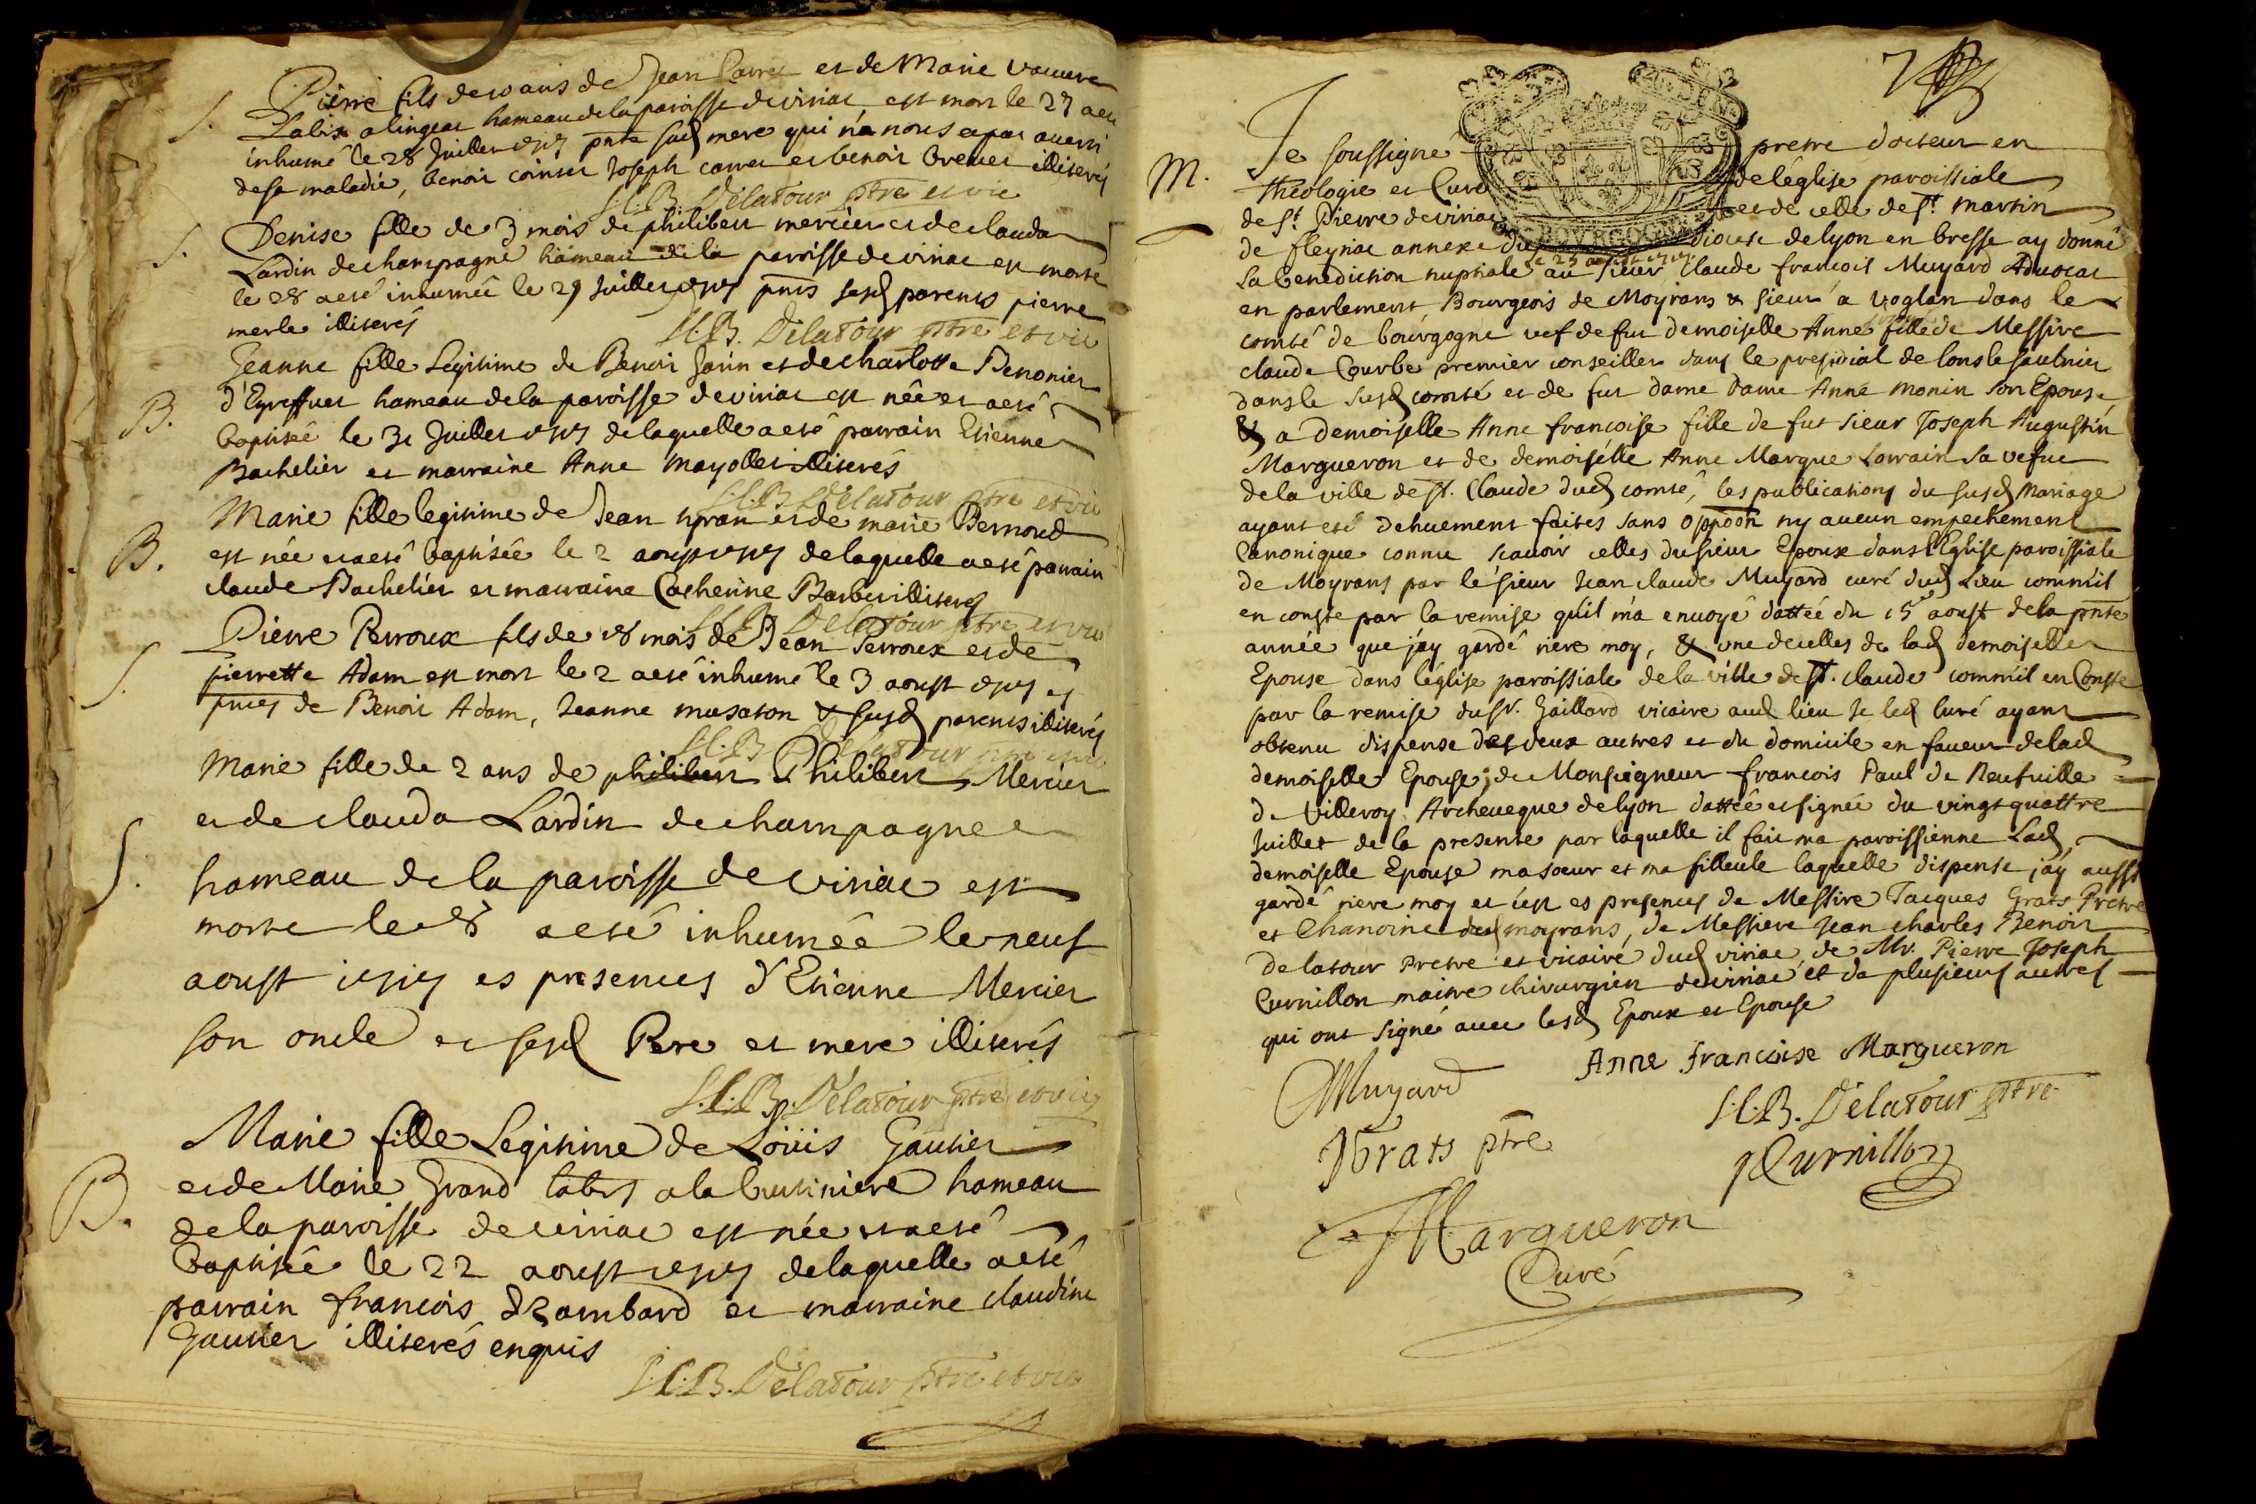 Pierre fils de 10 ans de Jean Carrel et de Marie
a lingeat hameau de la paroisse de viriat est mort le 27 a eté
inhumé le 28 Juillet 1717 pnte sad mere qui n'a nous a pas averti
de sa maladie, benoit Joseph carrel et benoit brevet illiterés
J.C.B. Délatour ptre et vic
S.
Denise fille de 3 mois de philibert mercier et de clauda
Lardin de champagne hameau de la paroisse de viriat est morte
le 28 a eté inhumée le 29 Juillet 1717 pnts sesd parents pierre
merle illiterés
J.C.B. Délatour ptre et vic
S.
Jeanne fille Legitime de Benoit Jarin et de charlotte Benonier
hameau de la paroisse de viriat est née et a eté
baptisée le 31 Juillet 1717 de laquelle a eté parrain Etienne
Bachelier et marraine Anne mayollet illiterés
J.C.B. Délatour ptre et vic
B.
Marie fille legitime de Jean et de marie Bernoud
est née et a eté baptisée le 2 aoust 1717 de laquelle a eté parrain
claude Bachelier et marraine Catherine Barbet illiterés
J.C.B. Délatour ptre et vic
B.
Pierre Perroux fils de 18 mois de Jean Perroux et de
pierrette Adam est mort le 2 a eté inhumé le 3 aoust 1717 es
pnces de Benoit Adam, Jeanne musaton & susd parents illiterés
J.C.B. Délatour ptre et vic
S.
Marie fille de 2 ans de philibert Philibert Mercier
et de clauda Lardin de champagne
hameau de la paroisse de viriat est
morte le 8 a eté inhumée le neuf
aoust 1717 es presences d'Etienne Mercier
son oncle et sesd Pere et mere illiterés
J.C.B. Délatour ptre et vic
S.
Marie fille Legitime de Loüis Gautier
et de Marie Grand labrs a la hameau
de la paroisse de viriat est née et a eté
baptisée le 22 aoust 1717 de laquelle a eté
parrain francois Chambard et marraine claudine
Gautier illiterés enquis
J.C.B. Délatour ptre et vic
B.
7
M.
Je soussigné pretre docteur en
theologie et Curé de l'église paroissiale
de St. Pierre de viriat et de celle de St. martin
de fleyriat annexe du diocese de lyon en bresse ay donné
La benediction nuptiale au sieur Claude francois Muyard Advocat
en parlement, Bourgeois de Moyrans & sieur a voglan dans le
comté de bourgogne vef de fut demoiselle Anne fille de Messire
claude Courbe premier conseiller dans le presidial de lons le saulnier
dans le susd comté et de fut dame dame Anne monin son Epouse
& a demoiselle Anne francoise fille de fut sieur Joseph Augustin
Margueron et de demoiselle Anne Marque Lorrain sa vefve
de la ville de St. Claude dud comté, les publications du susd Mariage
ayant eté dehuement faites sans oppôon ny aucun empechement
Canonique connu scavoir celles du sieur Epoux dans l'Eglise paroissiale
de Moyrans par le sieur Jean claude Muyard curé dud Lieu comm'il
en conste par la remise qu'il m'a envoyé dattée du 15e aoust de la pnte
année que j'ay gardé riere moy, & une decelles de lad demoiselle
Epouse dans l'église paroissiale de la ville de St. claude comm'il en Conste
par la remise du Sr. Gaillard vicaire aud lieu Je led Curé ayant
obtenu dispense des deux autres et du domicile en faveur de lad
demoiselle Epouse, de Monseigneur francois Paul de Neufville
de Villeroy Archeveque de lyon dattée et signée du vingt quattre
Juillet de la presente par laquelle il fait ma paroissienne Lad
demoiselle Epouse ma soeur et ma filleule laquelle dispense j'ay aussi
gardé riere moy et c'est es presences de Messire Jacques Grats Pretre
et Chanoine dud moyrans, de Messiere Jean charles Benoit
de latour Pretre et vicaire dud viriat, de Mr. Pierre Joseph
Curnillon maitre chirurgien de viriat et de plusieurs autres
qui ont signé avec lesd Epoux et Epouse
Muyard
Anne francoise Margueron
J.C.B. Délatour ptre
JGrats ptre
Curnillon
Margueron
Curé